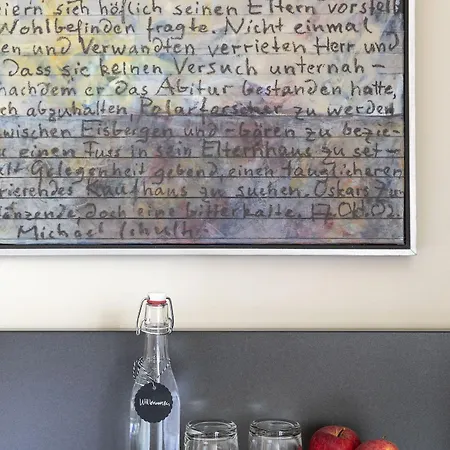 iern sich höflich seinen Eltern vorstell
Wohlbefinden fragte. Nicht einmal
en und Verwandten verrieten Herr und
dass sie keinen Versuch unternah-
nachdem er das Abitur bestanden hatte,
ch abzuhalten, Polarforscher zu werden
zwischen Eisbergen und -bären zu bezie-
einen Fuss in sein Elternhaus zu set-
Gelegenheit gebend einen tauglicheren
rierendes Kaufhaus zu suchen. Oskars Zu-
länzende, doch eine bitterkalte. 17. Okt. 02.
Michael
Willkommen